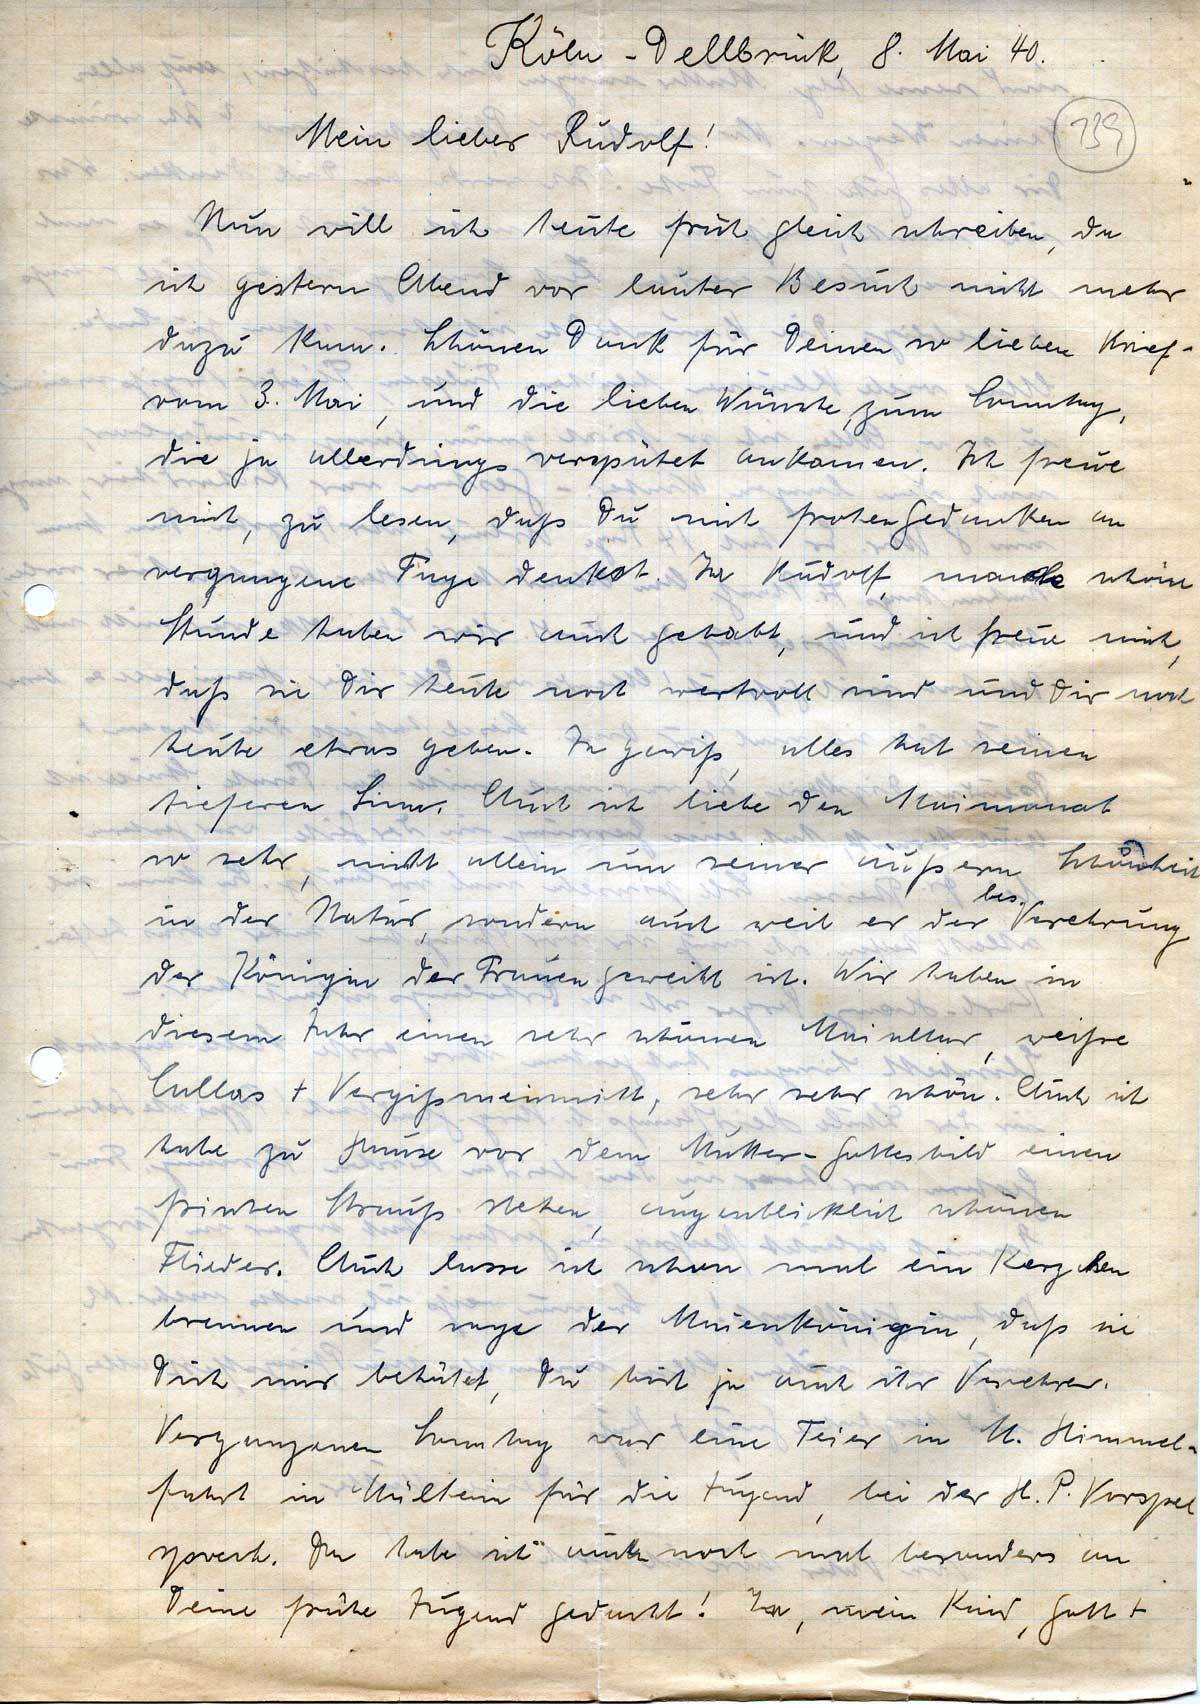 Köln-Dellbrück, 8. Mai 40.
739
Mein lieber Rudolf!
Nun will ich heute früh gleich schreiben, da
ich gestern Abend vor lauter Besuch nicht mehr
dazu kam. Schönen Dank für Deinen so lieben Brief
vom 3. Mai, und die lieben Wünsche, zum Sonntag,
die ja allerdings verspätet ankamen. Ich freue
mich, zu lesen, daß Du mit frohen Gedanken an
vergangene Tage denkst. Ja Rudolf, manche schöne
Stunde haben wir auch gehabt, und ich freue mich,
daß sie Dir heute noch wertvoll sind und Dir noch
heute etwas geben. Ja gewiß, alles hat seinen
tieferen Sinn. Auch ich liebe den Maimonat
so sehr, nicht allein um seiner äußern Schönheit
in der Natur, sondern auch weil er der bes. Verehrung
der Königin der Frauen geweiht ist. Wir haben in
diesem Jahr einen sehr schönen Maialtar, weiße
Callas + Vergißmeinnicht, sehr sehr schön. Auch ich
habe zu Hause vor dem Mutter-Gottesbild einen
frischen Strauß stehen, augenblicklich schönen
Flieder. Auch lasse ich schon mal ein Kerzchen
brennen und sage der Maienkönigin, daß sie
Dich mir behütet, Du bist ja auch ihr Verehrer.
Vergangenen Sonntag war eine Feier in M. Himmel-
fahrt in Mülheim für die Jugend, bei der H. P. Vorspel
sprach. Da habe ich auch noch mal besonders an
Deine frühe Jugend gedacht! Ja, mein Kind, Gott +